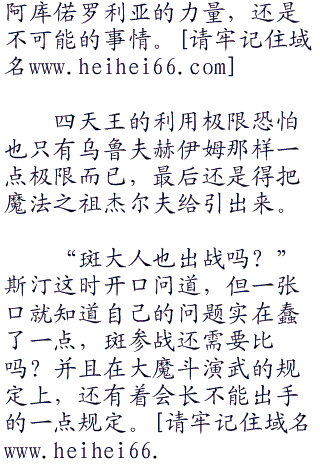 阿库偌罗利亚的力量，还是
不可能的事情。[请牢记住域
名www.heihei66.com]
四天王的利用极限恐怕
也只有乌鲁夫赫伊姆那样一
点极限而已，最后还是得把
魔法之祖杰尔夫给引出来。
“斑大人也出战吗？”
斯汀这时开口问道，但一张
口就知道自己的问题实在蠢
了一点，斑参战还需要比
吗？并且在大魔斗演武的规
定上，还有着会长不能出手
的一点规定。[请牢记住域名
www.heihei66.